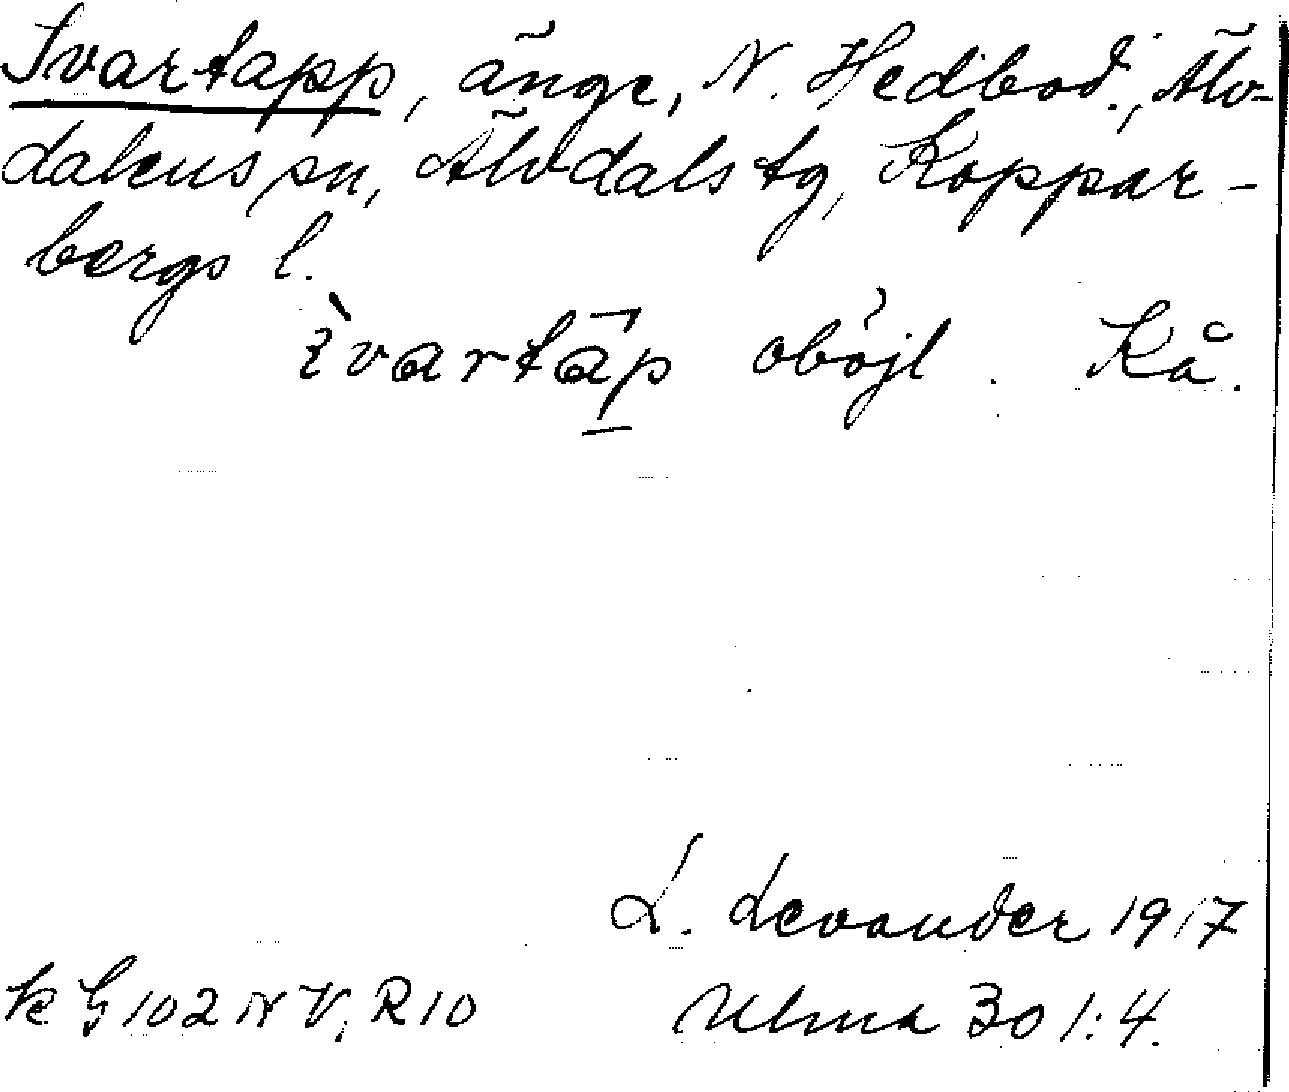 Svartapp, änge, N. Hedbod., Älv-
dalens sn, Älvdals tg, Koppar-
bergs l.
svartäp oböjl. Kå.
L. Levander 1917
k G 102 N V, R 10 Ulma 301:4.